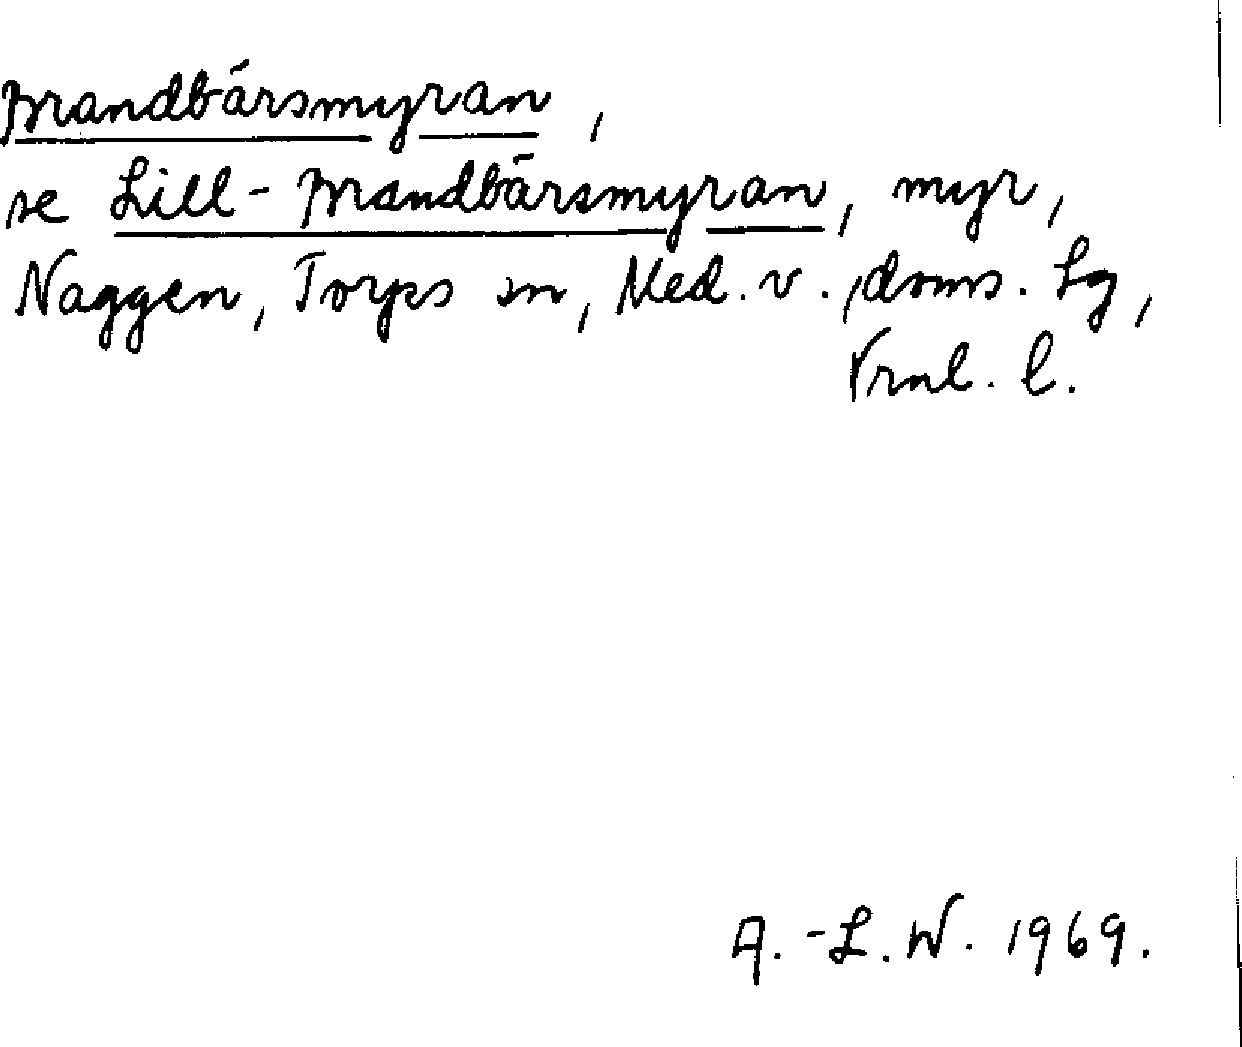 Brandbärsmyran,
se Lill-Brandbärsmyran, myr,
Naggen, Torps sn, Med. v. doms. Lg,
Vrnl. l.
A.-L. W. 1969.